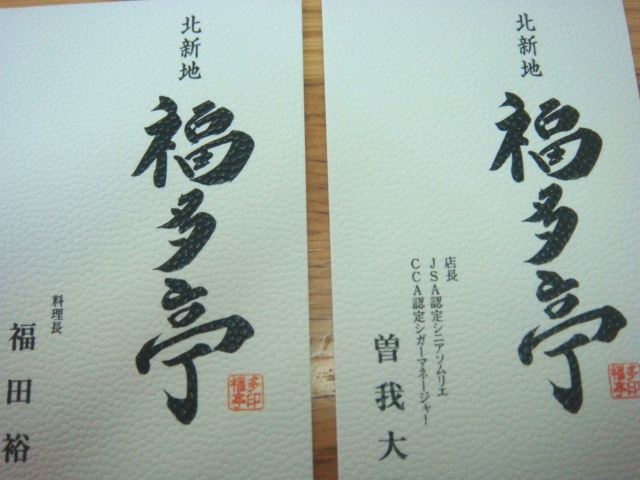 北新地
福多亭
料理長
福田裕
多印
福亭
北新地
福多亭
店長
JSA認定シニアソムリエ
CCA認定シガーマネージャー
曽我大
多印
福亭